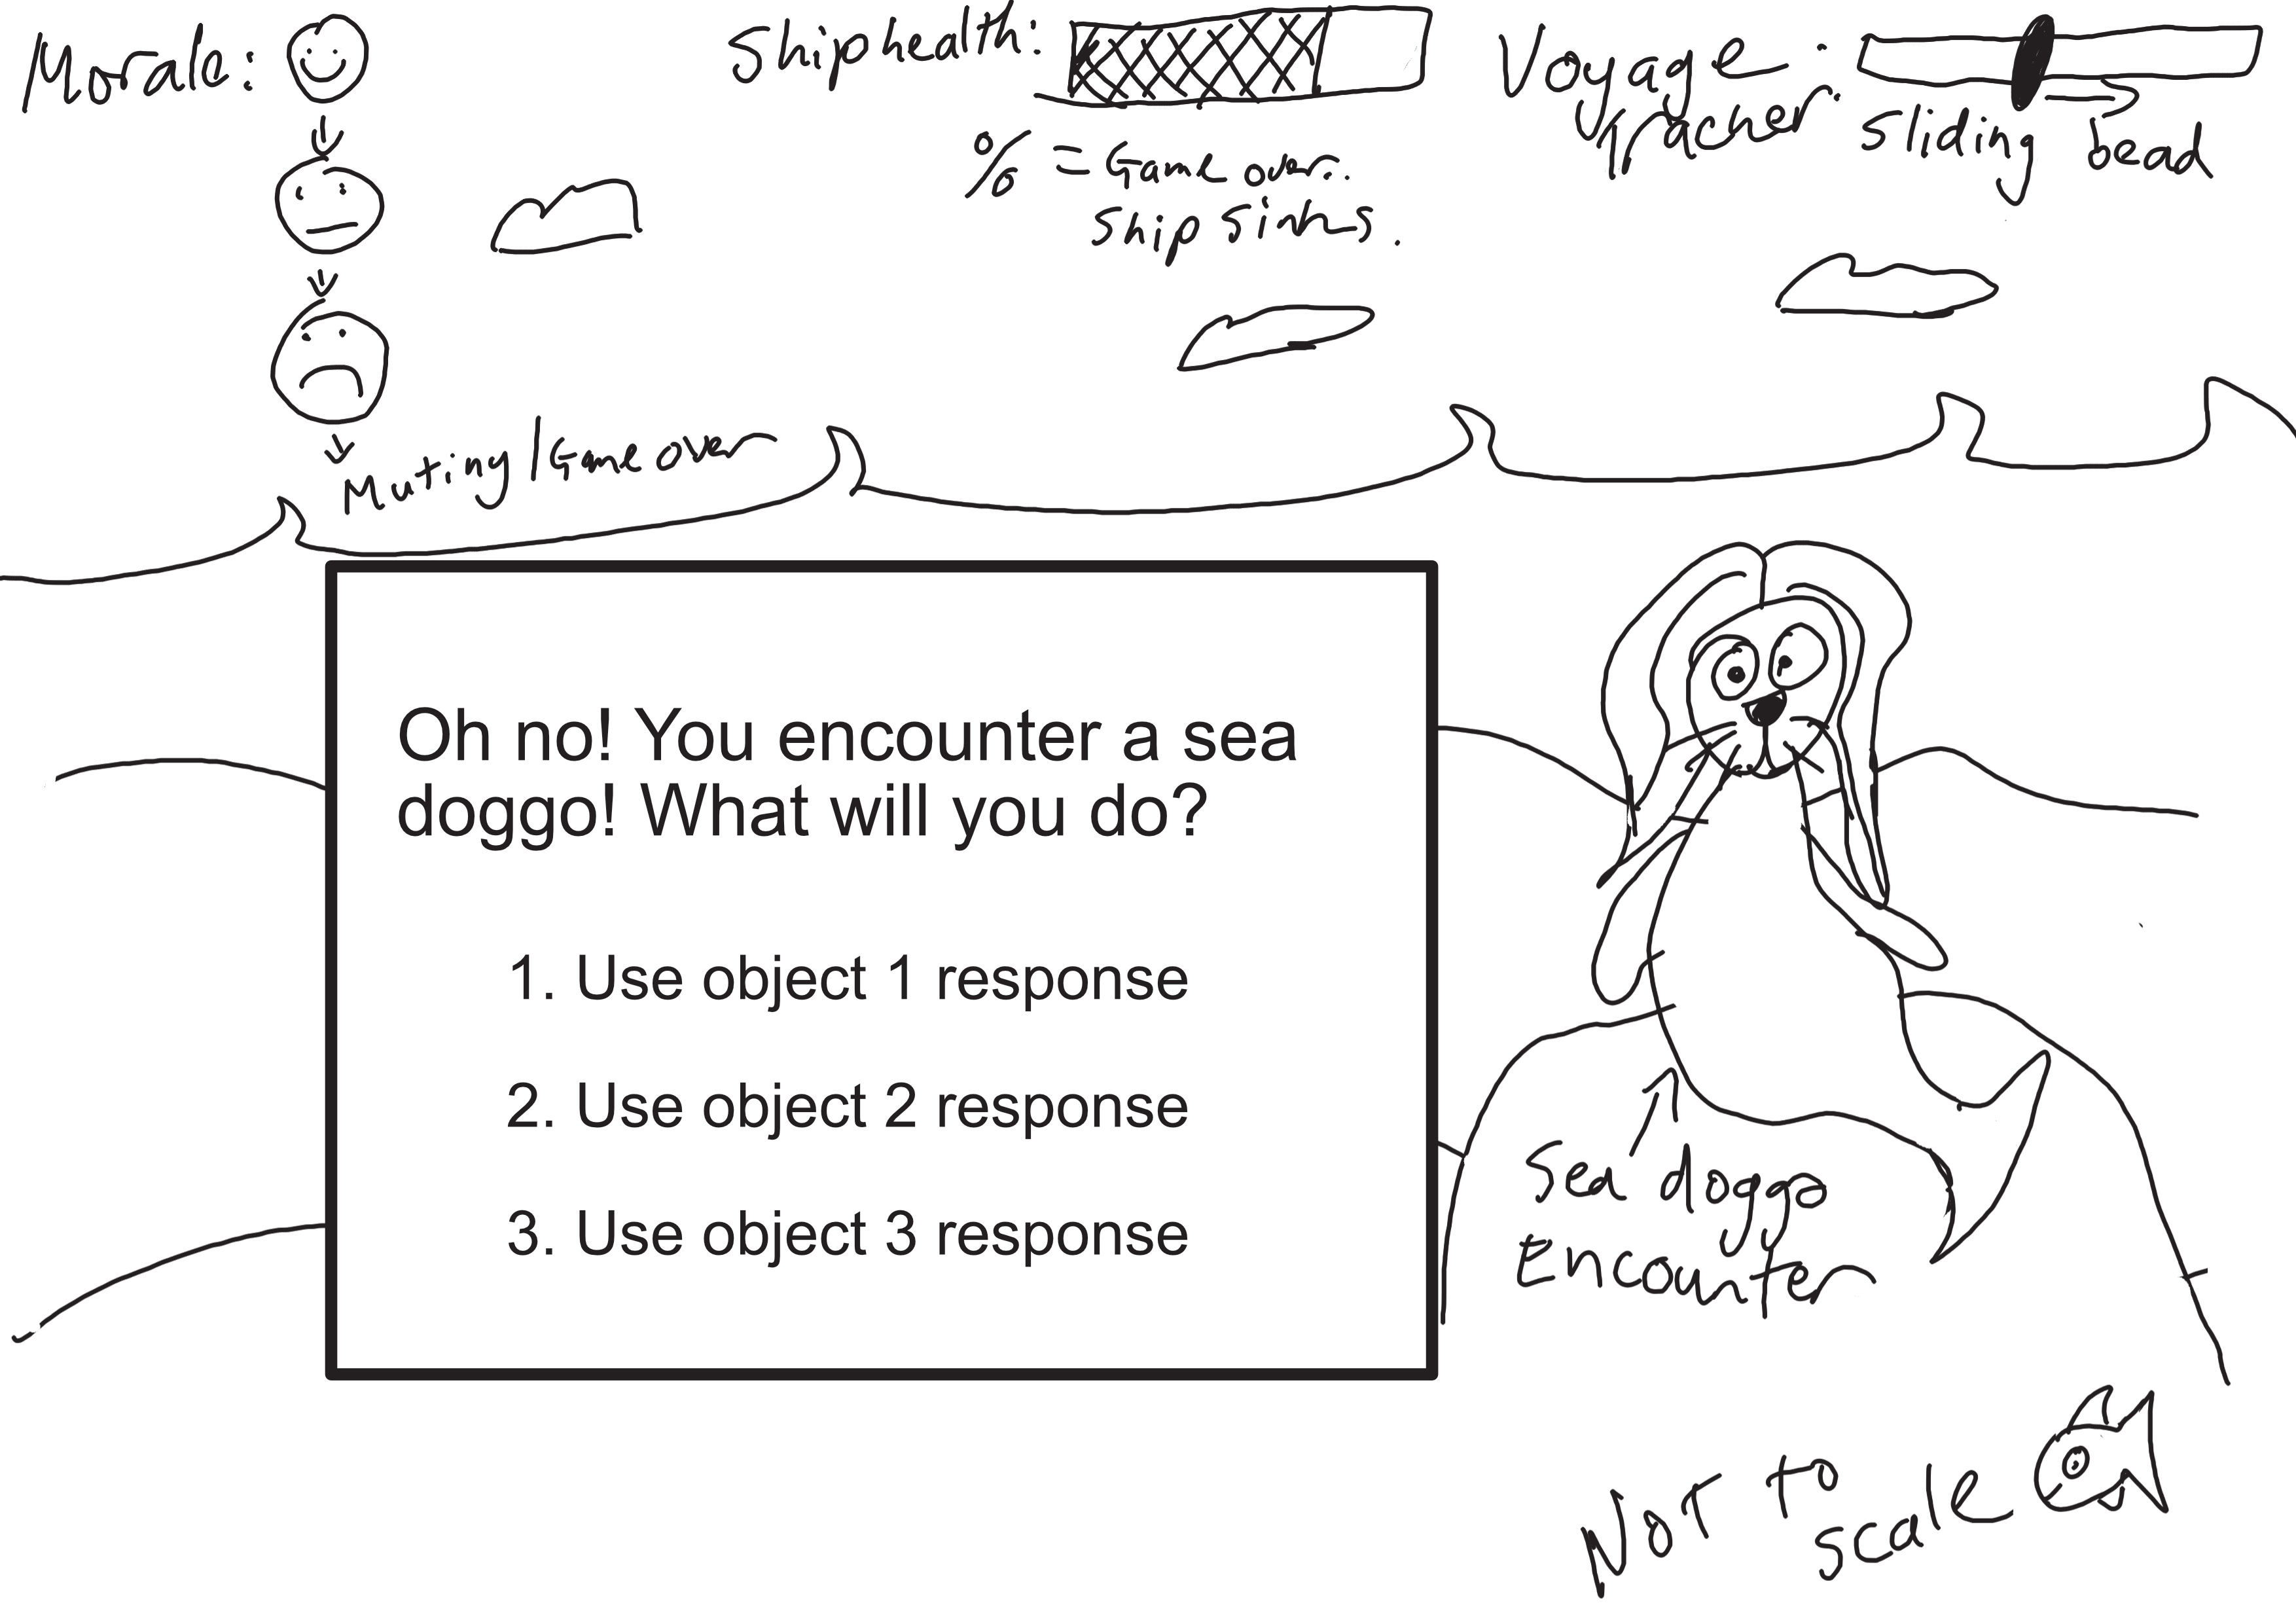 Morale:
Ship health:
% = Game over.
Ship Sinks.
Voyage
Tracker:
Sliding bead
Mutiny / Game over
Oh no! You encounter a sea
doggo! What will you do?
1. Use object 1 response
2. Use object 2 response
3. Use object 3 response
Sea doggo
Encounter
NOT to
scale